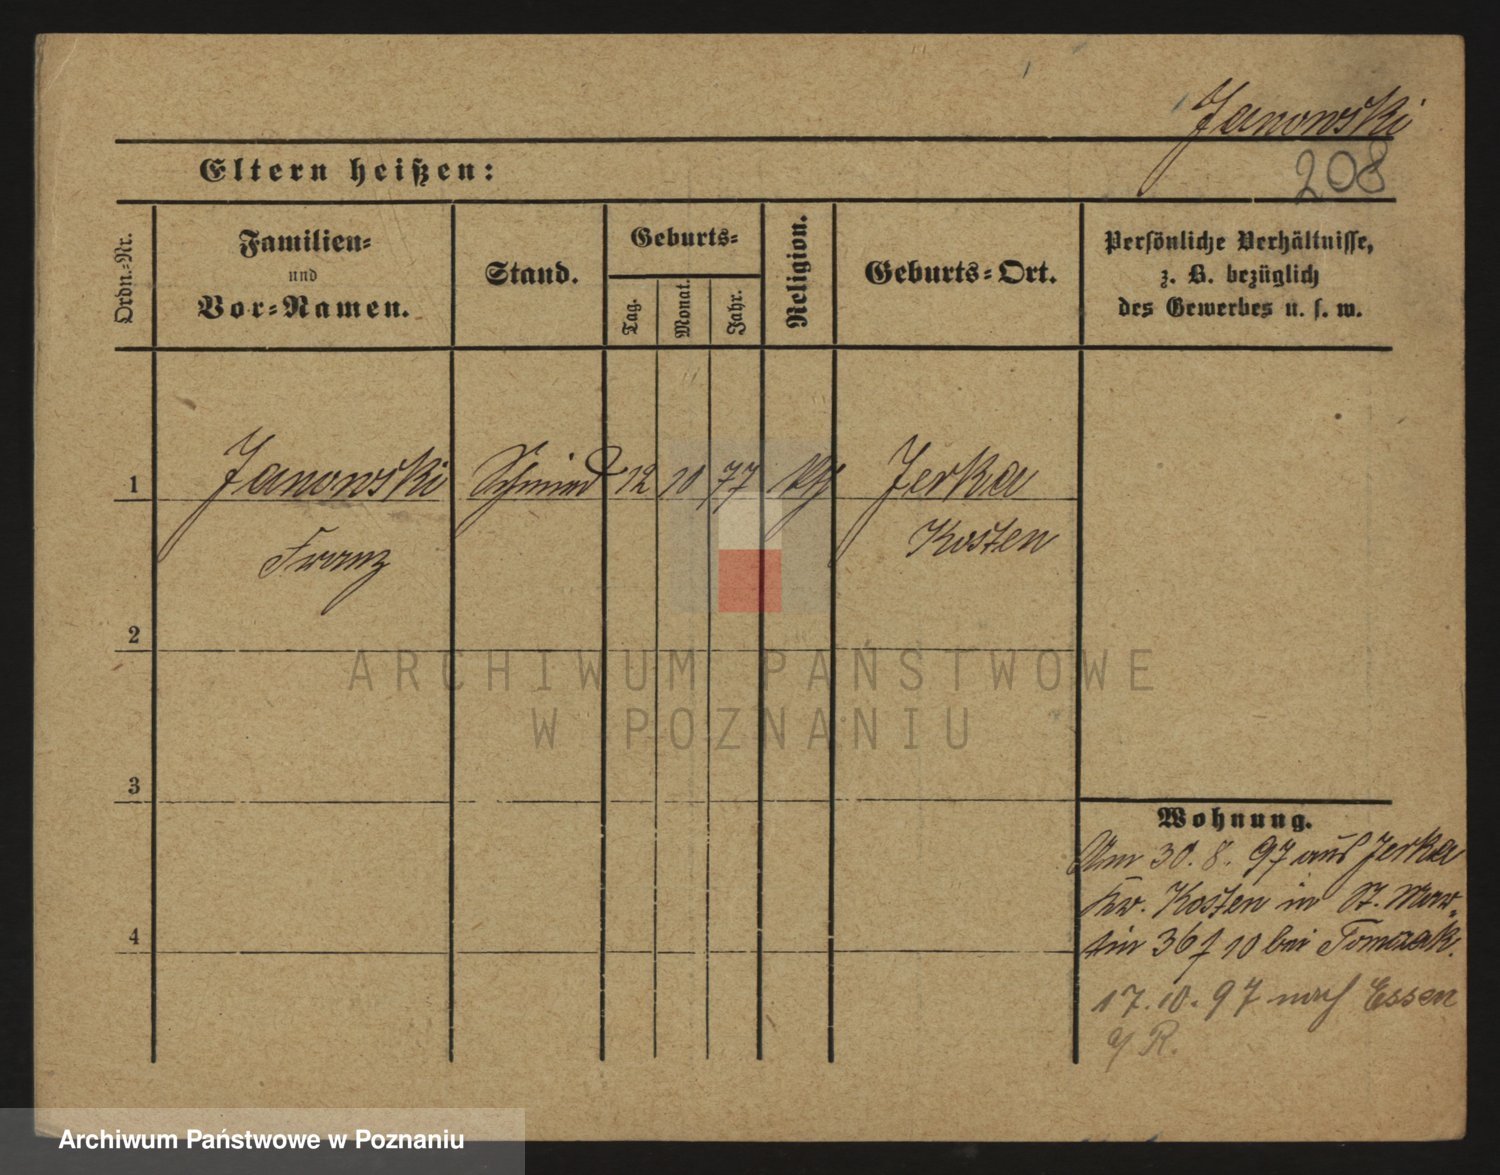 Janowski
208
Eltern heißen:
Ordn.-Nr.
Familien-
und
Vor-Namen.
Stand.
Geburts-
Tag.
Monat.
Jahr.
Religion.
Geburts-Ort.
Persönliche Verhältnisse,
z. B. bezüglich
des Gewerbes u. s. w.
1
Janowski Schmied 12 10 77 kth Jerka
Franz Kosten
2
3
4
Wohnung.
Am 30. 8. 97 aus Jerka
Kr. Kosten in St. Mar-
tin 36 10 bei Tomaak.
17. 10. 97 nach Essen
a/R.
ARCHIWUM PAŃSTWOWE
W POZNANIU
Archiwum Państwowe w Poznaniu